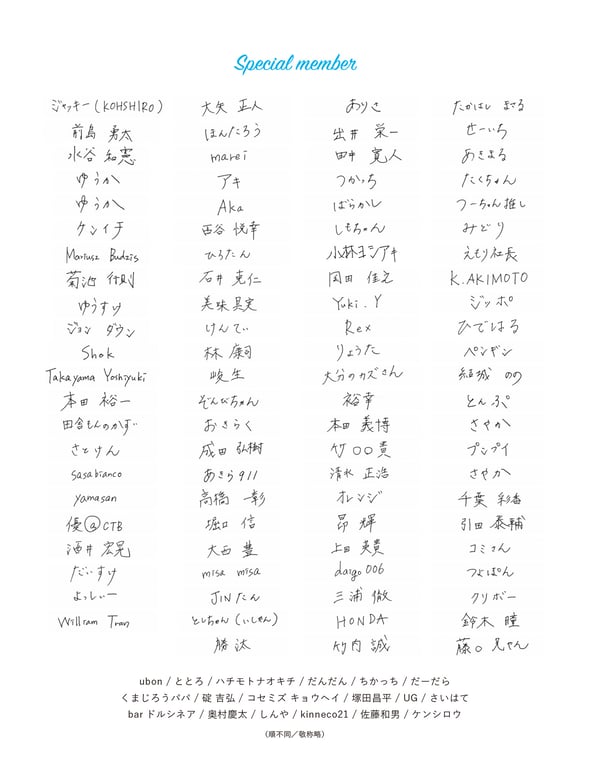 Special member
ジャッキー(KOHSHIRO) 大矢 正人 ありさ たかはし まさる
前島 勇太 ほんだろう 出井 栄一 せーいち
水谷 和憲 marei 田中 寛人 あきまる
ゆうか アキ つかっち たくちゃん
ゆうか Aka ばらかし つーちゃん推し
ケンイチ 西谷 悦幸 しもちゃん みどり
Mariusz Budzis ひろたん 小林ヨシアキ えもり社長
菊池 行則 石井 克仁 岡田 佳之 K.AKIMOTO
ゆうすけ 美味真実 Yuki.Y ジッポ
ジョン ダウン けんてぃ Rex ひではる
Shok 林 康司 りょうた ペンギン
Takayama Yoshiyuki 峻生 大分のカズさん 結城 のの
本田 裕一 ぞんびちゃん 裕幸 とんぷ
田舎もんのかずー おきらく 本田 義博 さやか
さとけん 成田 弘樹 竹〇〇貴 プンプイ
sasabianco あきら911 清水 正浩 さやか
yamasan 高橋 一彰 オレンジ 千葉 彩香
優@CTB 堀口 信 昂 輝 引田 泰輔
酒井 宏晃 大西 豊 上田 英貴 コミさん
だいすけ misa misa daigo006 つよぽん
よっしぃー JINたん 三浦 徹 クリボー
William Tran としちゃん(いしゃん) HONDA 鈴木 瞳
勝汰 竹内 誠 藤〇兄やん
ubon / ととろ / ハチモトナオキチ / だんだん / ちかっち / だーだら
くまじろうパパ / 碇 吉弘 / コセミズ キョウヘイ / 塚田昌平 / UG / さいはて
bar ドルシネア / 奥村慶太 / しんや / kinneco21 / 佐藤和男 / ケンシロウ
(順不同/敬称略)